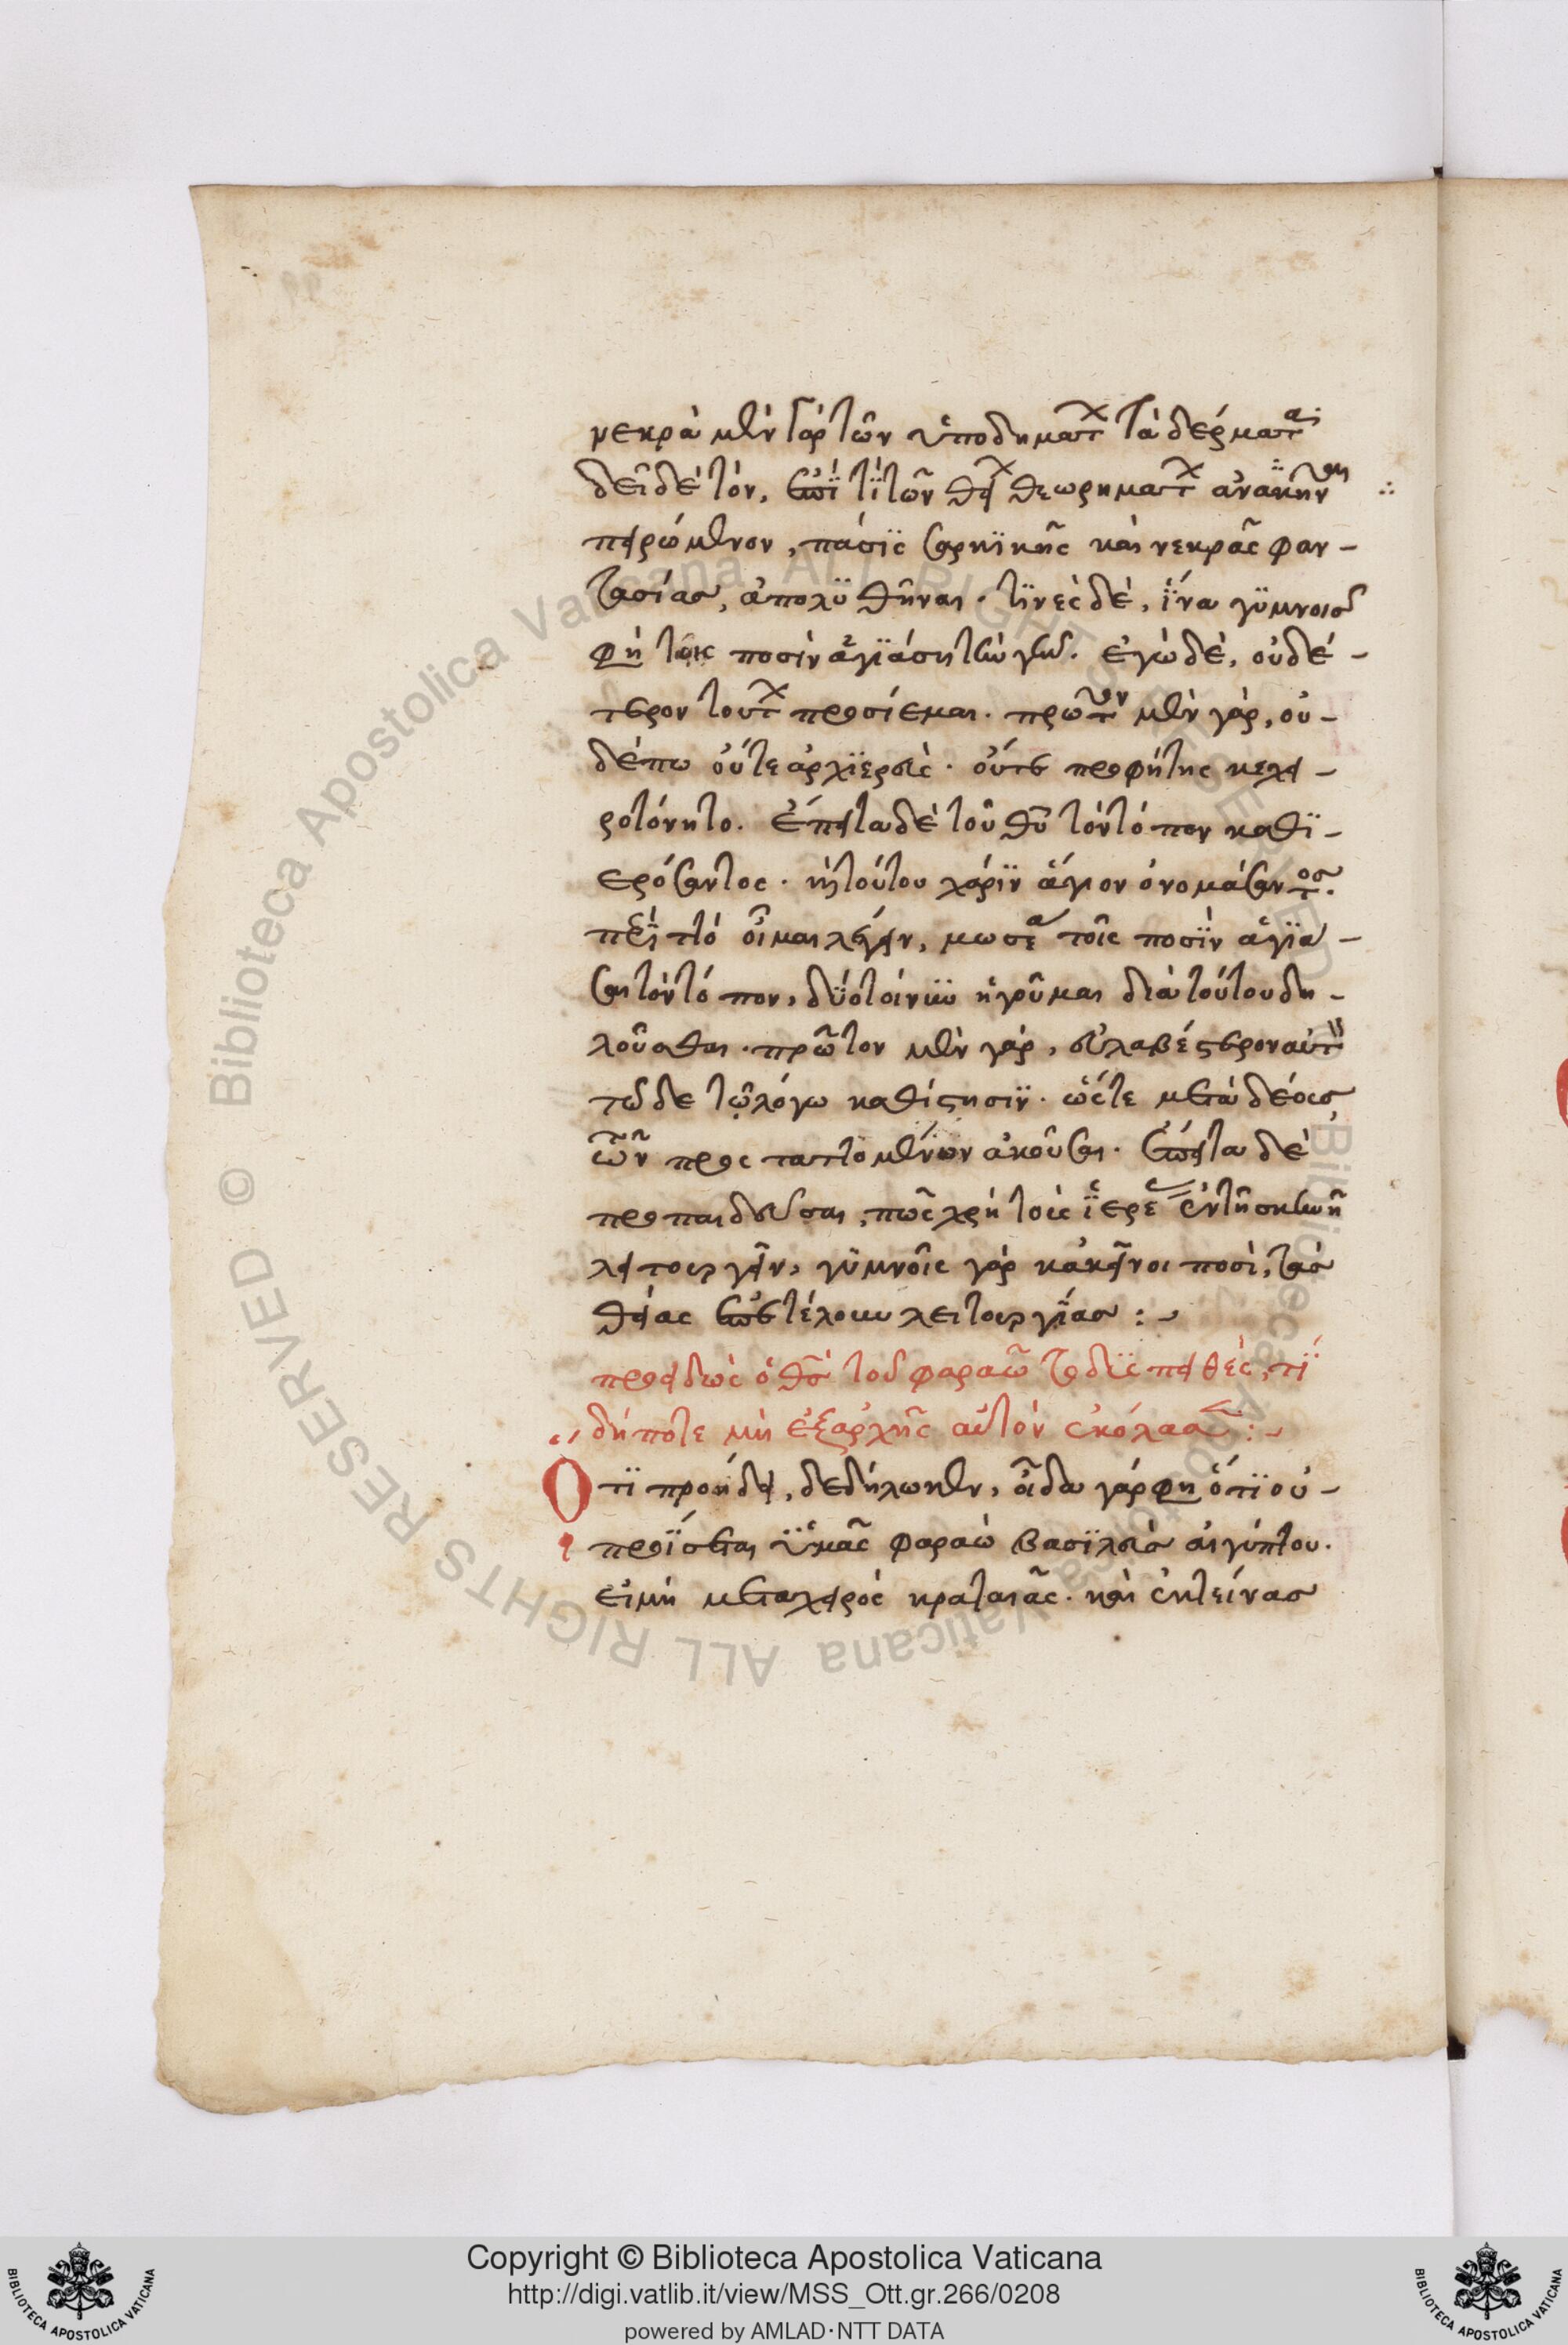 νεκρὰ μὲν γὰρ τῶν ὑποδημάτων τὰ δέρματα·
δεῖ δὲ τὸν, ἐπί τι τῶν θείων θεωρημάτων ἀνακινῆσαι
πειρώμενον, πάσις σαρκικῆς καὶ νεκρᾶς φαν-
τασίας, ἀπολυθῆναι· τινὲς δὲ, ἵνα γυμνοῖς
φη τοῖς ποσὶν ἁγιάσῃ τὴν γῆν. ἐγὼ δὲ, οὐδέ-
τερον τούτων προσίεμαι. πρῶτον μὲν γὰρ, οὐ-
δέπω οὔτε ἀρχιερεὺς· οὔτε προφήτης κεχει-
ροτόνητο. ἔπειτα δὲ τοῦ θυ τὸν τόπον καθι-
ερόσαντος· κὴ τούτου χάριν ἅγιον ὀνομάσαντος.
τὸ οἶμαι λέγειν, μωσέα τοῖς ποσὶν ἁγιά-
σαι τὸν τόπον, δύο τοίνυν ἡγοῦμαι διὰ τούτου δη-
λοῦσθαι· πρῶτον μὲν γὰρ, εὐλαβέστερον αὐτὸν
τῶδε τῶ λόγω καθίστησιν· ὥστε μετὰ δέους
τῶν προσταττομένων ἀκοῦσαι. ἔπειτα δὲ
προπαιδεῦσαι, πῶς χρὴ τοὺς ἱερέας ἐν τῆ σκηνῆ
λειτουργεῖν, γυμνοῖς γὰρ κακεῖνοι ποσὶ, τὰς
θείας ἐπετέλουν λειτουργίας :
προειδὼς ὁ θσ τοῦ φαραὼ τὸ δισπειθὲς, τί
δήποτε μὴ ἐξαρχῆς αὐτὸν ἐκόλασε :
Οτι προήδει, δεδήλωκεν, οἶδα γάρ φη ὅτι οὐ-
προΐσεται ὑμᾶς φαραὼ βασιλεὺς αἰγύπτου.
εἰμὴ μετὰ χειρὸς κραταιᾶς· καὶ ἐκτείνας
Copyright © Biblioteca Apostolica Vaticana
http://digi.vatlib.it/view/MSS_Ott.gr.266/0208
powered by AMLAD·NTT DATA